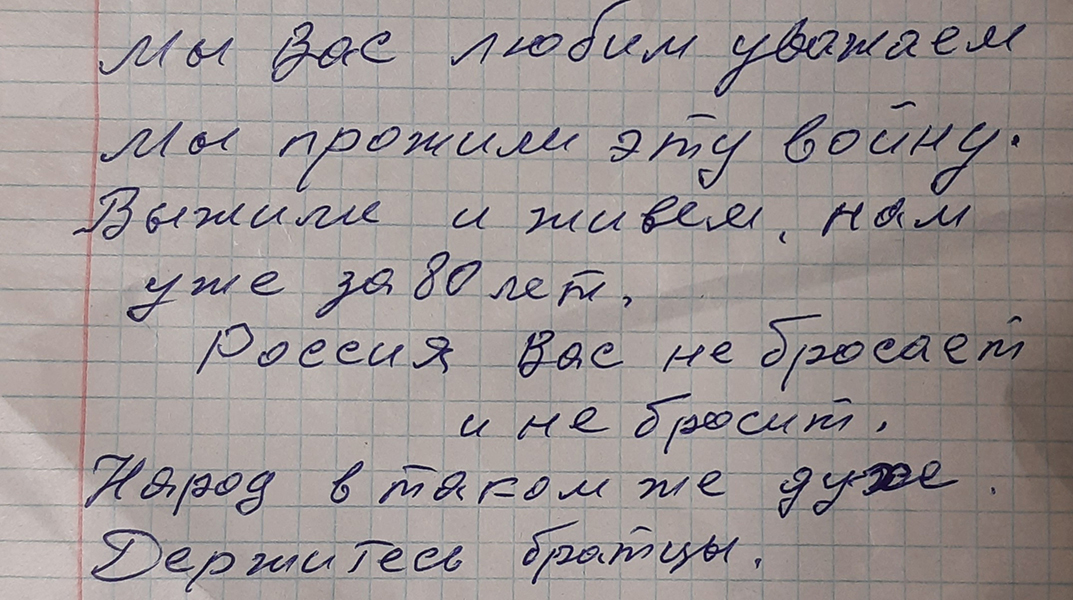 Мы Вас любим уважаем
Мы прожили эту войну.
Выжили и живем, нам
уже за 80 лет.
Россия Вас не бросает
и не бросит.
Народ в таком же духе.
Держитесь братцы.